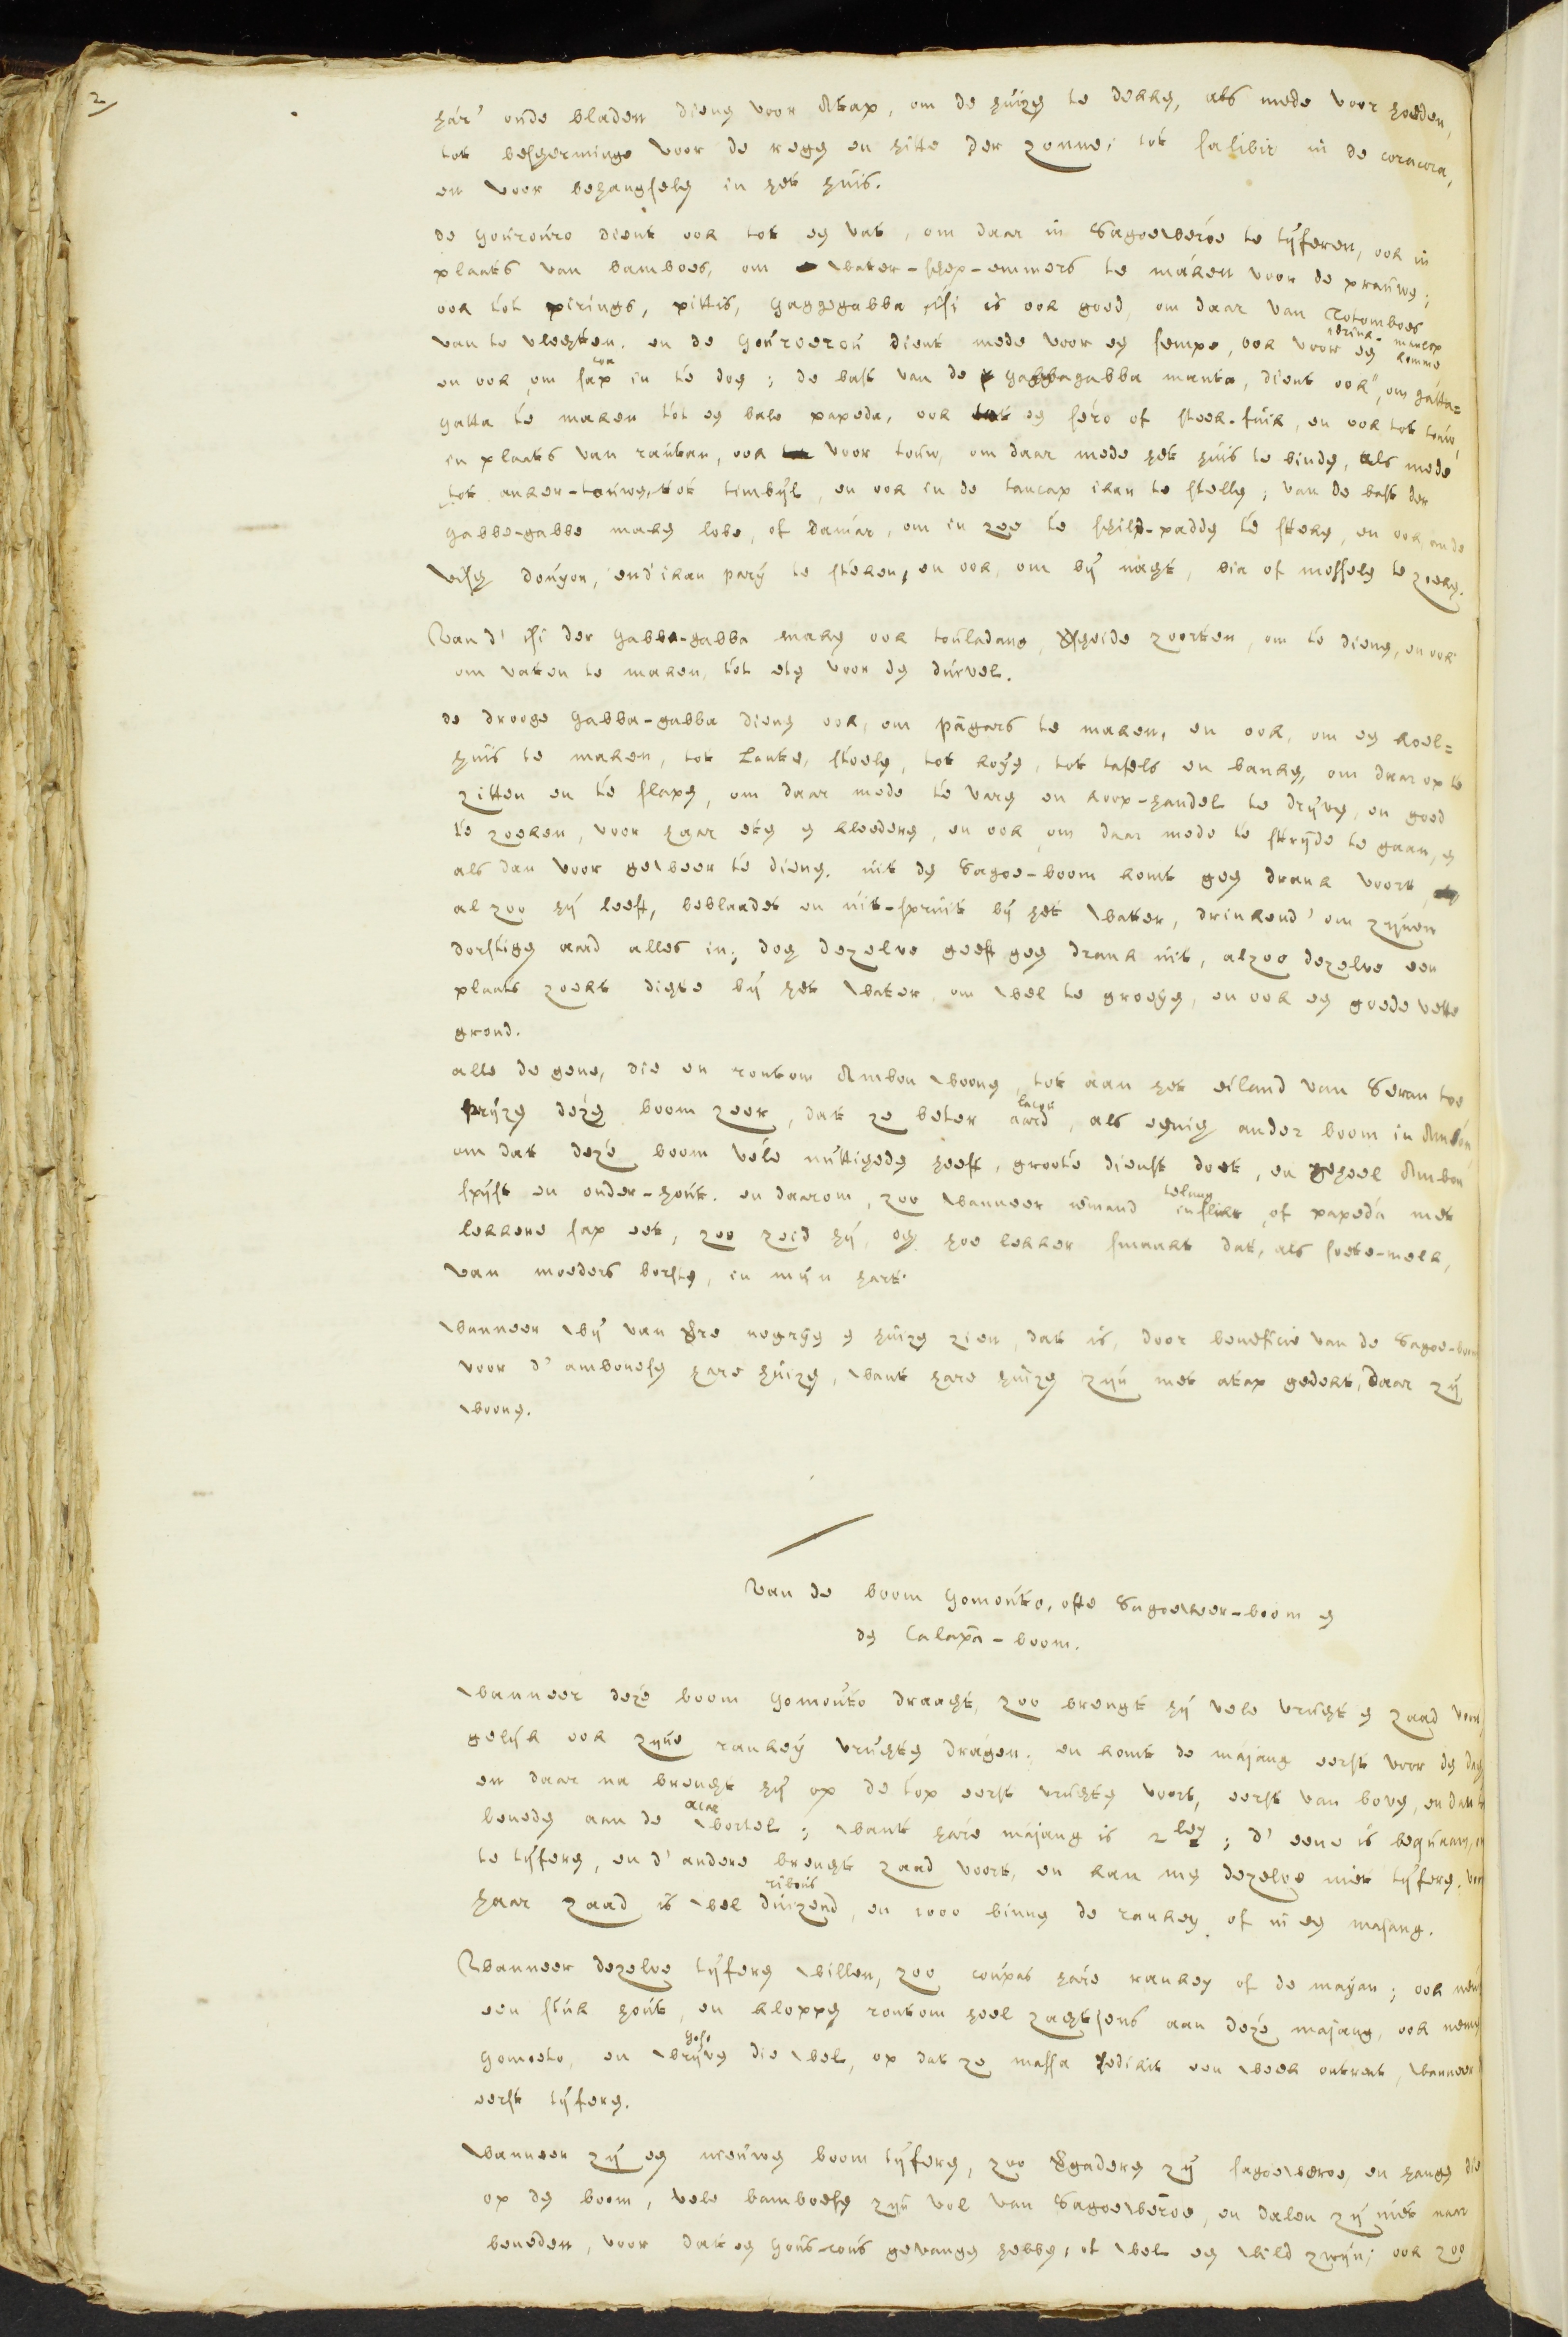 2/
hár' oude bladen dienen voor Atap, om de huizen te dekken, als mede voor hoeden,
tot bescherminge voor de regen en hitte der zonne; tot salibir in de coracora,
en voor behangselen in het huis.
de Gouroúro dient ook tot een vat, om daar in Sagoeweroe te tyferen, ook in
plaats van bamboes, om water-schep-emmers te máken voor de prauwen;
ook tot pirings, pittis, Gaggegabba isi is ook goed, om daar van Totomboes
van te vlechten. en de Goúroeroú dient mede voor een sempe, ook voor een komme
en ook, om sap in te doen; de bast van de Gabbagabba manta, dient ook, om gatta=
gatta te maken tot een bale papeda, ook een séro of steek-fuik, en ook tot touw,
in plaats van rautan, ook voor touw, om daar mede het huis te binden, als mede
tot anker-touwen, tot timbyl, en ook in de tancap ikan te stellen; van de bast der
Gabbe-gabbe maken lobe, of damár, om in zee te schild-padden te steken, en ook, om de
visch doúyon, end' ikan parÿ te steken, en ook, om by nácht, bia of mosselen te zoeken.
Van d' isi der Gabba-gabba maken ook touladang, verscheide zoorten, om te dienen, en ook
om vaten te maken, tot eten voor den duivel.
de drooge Gabba-gabba dienen ook, om págars te maken, en ook, om een koel=
huis te maken, tot Lante, stoelen, tot koyen, tot tafels en banken, om daar op te
zitten en te slapen, om daar mede te varen en koop-handel te dryven, en goed
te zoeken, voor haar eten en kledere, en ook, om daar mede te stryde te gaan, en
als dan voor geweer te dienen. uit den Sagoe-boom komt geen drank voort,
al zoo hy leeft, beblaadet en uit-spruit by het water, drinkend' om zynen
dorstigen aard alles in; doch dezelve geeft geen drank uit, alzoo dezelve een
plaats zoekt dichte by het water, om wel te groeyen, en ook een goede vette
grond.
alle de gene, die en rontom Ambon woonen, tot aan het eiland van Seran toe
pryzen dezen boom zeer, dat ze beter aard, als eenig ander boom in Ambón
om dat dezé boom véle nuttigheden heeft, groote dienst doet, en geheel Ambon
spyst en onder-hout. en daarom, zoo wanneer iemand inslikt, of papedá met
lekkere sap eet, zoo zeid hy, och hoe lekker smaakt dat, als soete-melk,
van moeders borsten, in myn hart.
wanneer wy van verre negryen en huizen zien, dat is, door beneficie van de Sagoe-boom
voor d' ambonesen hare huizen, want hare huizen zyn met atap gedekt, daar zy
woonen.
Van de boom Gomoúto, ofte Sagoeweer-boom en
den Calapā-boom.
wanneer dezé boom Gomoúto draacht, zoo brengt hy vele vrucht en zaad voort,
gelyk ook zyne rankey vruchten drágen; en komt de májang eerst voor den dach
en daar na brengt hy op de top eerst vruchten voort, eerst van boven, en dan
beneden aan de wortel; want haré májang is 2 ley; d' eene is bequaam, om
te tyferen, en d' andere brengt zaad voort, en kan men dezelve niet tyferen, want
haar zaad is wel duizend, en 1000 binnen de rankey of in een májang.
Wanneer dezelve tyferen willen, zoo coupas haré rankey of de mayan; ook nemen
een stúk hout, en kloppen rontom heel zachtjens aan dezé májang, ook nemen
Gomoeto, en wryven die wel, op dat ze massa sedikit een week ontrent, wanneer
eerst tyferen.
wanneer zy een nieuwen boom tyferen, zoo vergaderen zy sagoeweroe, en hangen die
op den boom, vele bamboesen zyn vol van Sagoeweroe, en dalen zy niet naar
beneden, voor dat een Gous-cous gevangen hebben, of wel een wild zwyn; ook zoo